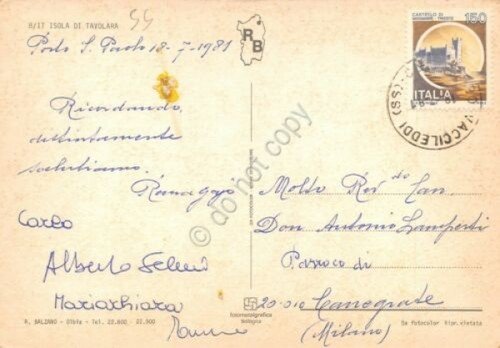 8/IT ISOLA DI TAVOLARA
55
Porto S. Paolo 18-7-1981
RB
CASTELLO DI
MIRAMARE - TRIESTE
150
ITALIA
VACCILEDDI (SS)
Ricordando
distintamente
salutiamo.
do not copy
Molto Rev. do Can.
Don Antonio Lamperti
Parroco di
20010 Canegrate
(Milano)
Carlo
Alberto
Mariachiara
R. BALZANO - Olbia - Tel. 22.600 - 22.900
fotometalgrafica
bologna
Da fotocolor ripr. vietata